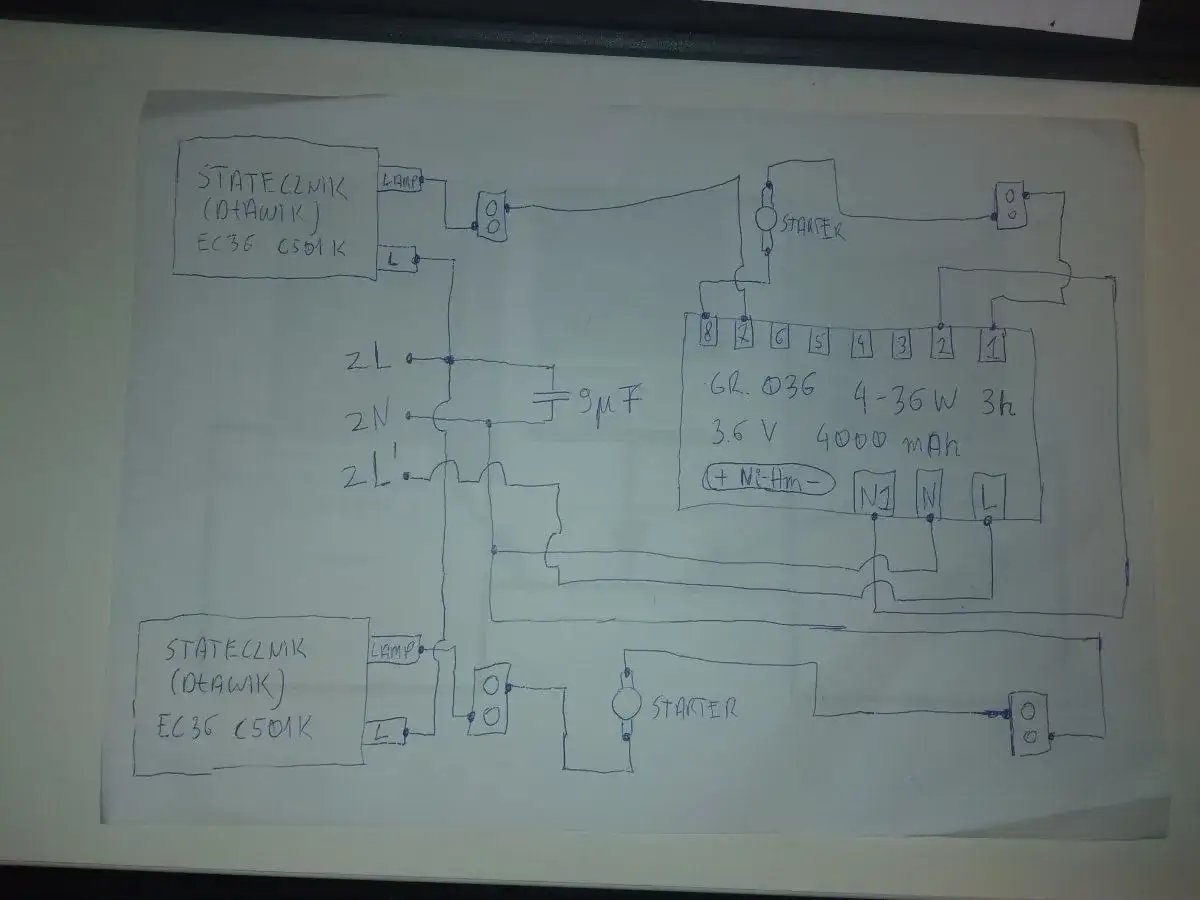 STATECZNIK
(DŁAWIK)
EC36 C501K
LAMP
L
STARTER
2L
2N
2L'
9μF
8 7 6 5 4 3 2 1
GR. 036 4-36W 3h
3.6 V 4000 mAh
+ Ni-Hm -
N1 N L
STATECZNIK
(DŁAWIK)
EC36 C501K
LAMP
L
STARTER